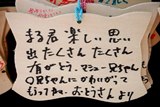 まる君 楽しい思い
出 たくさん たくさん
有がとう。マシュー兄ちゃん
兄ちゃんにかわいがって
もらってね。おとうさんより